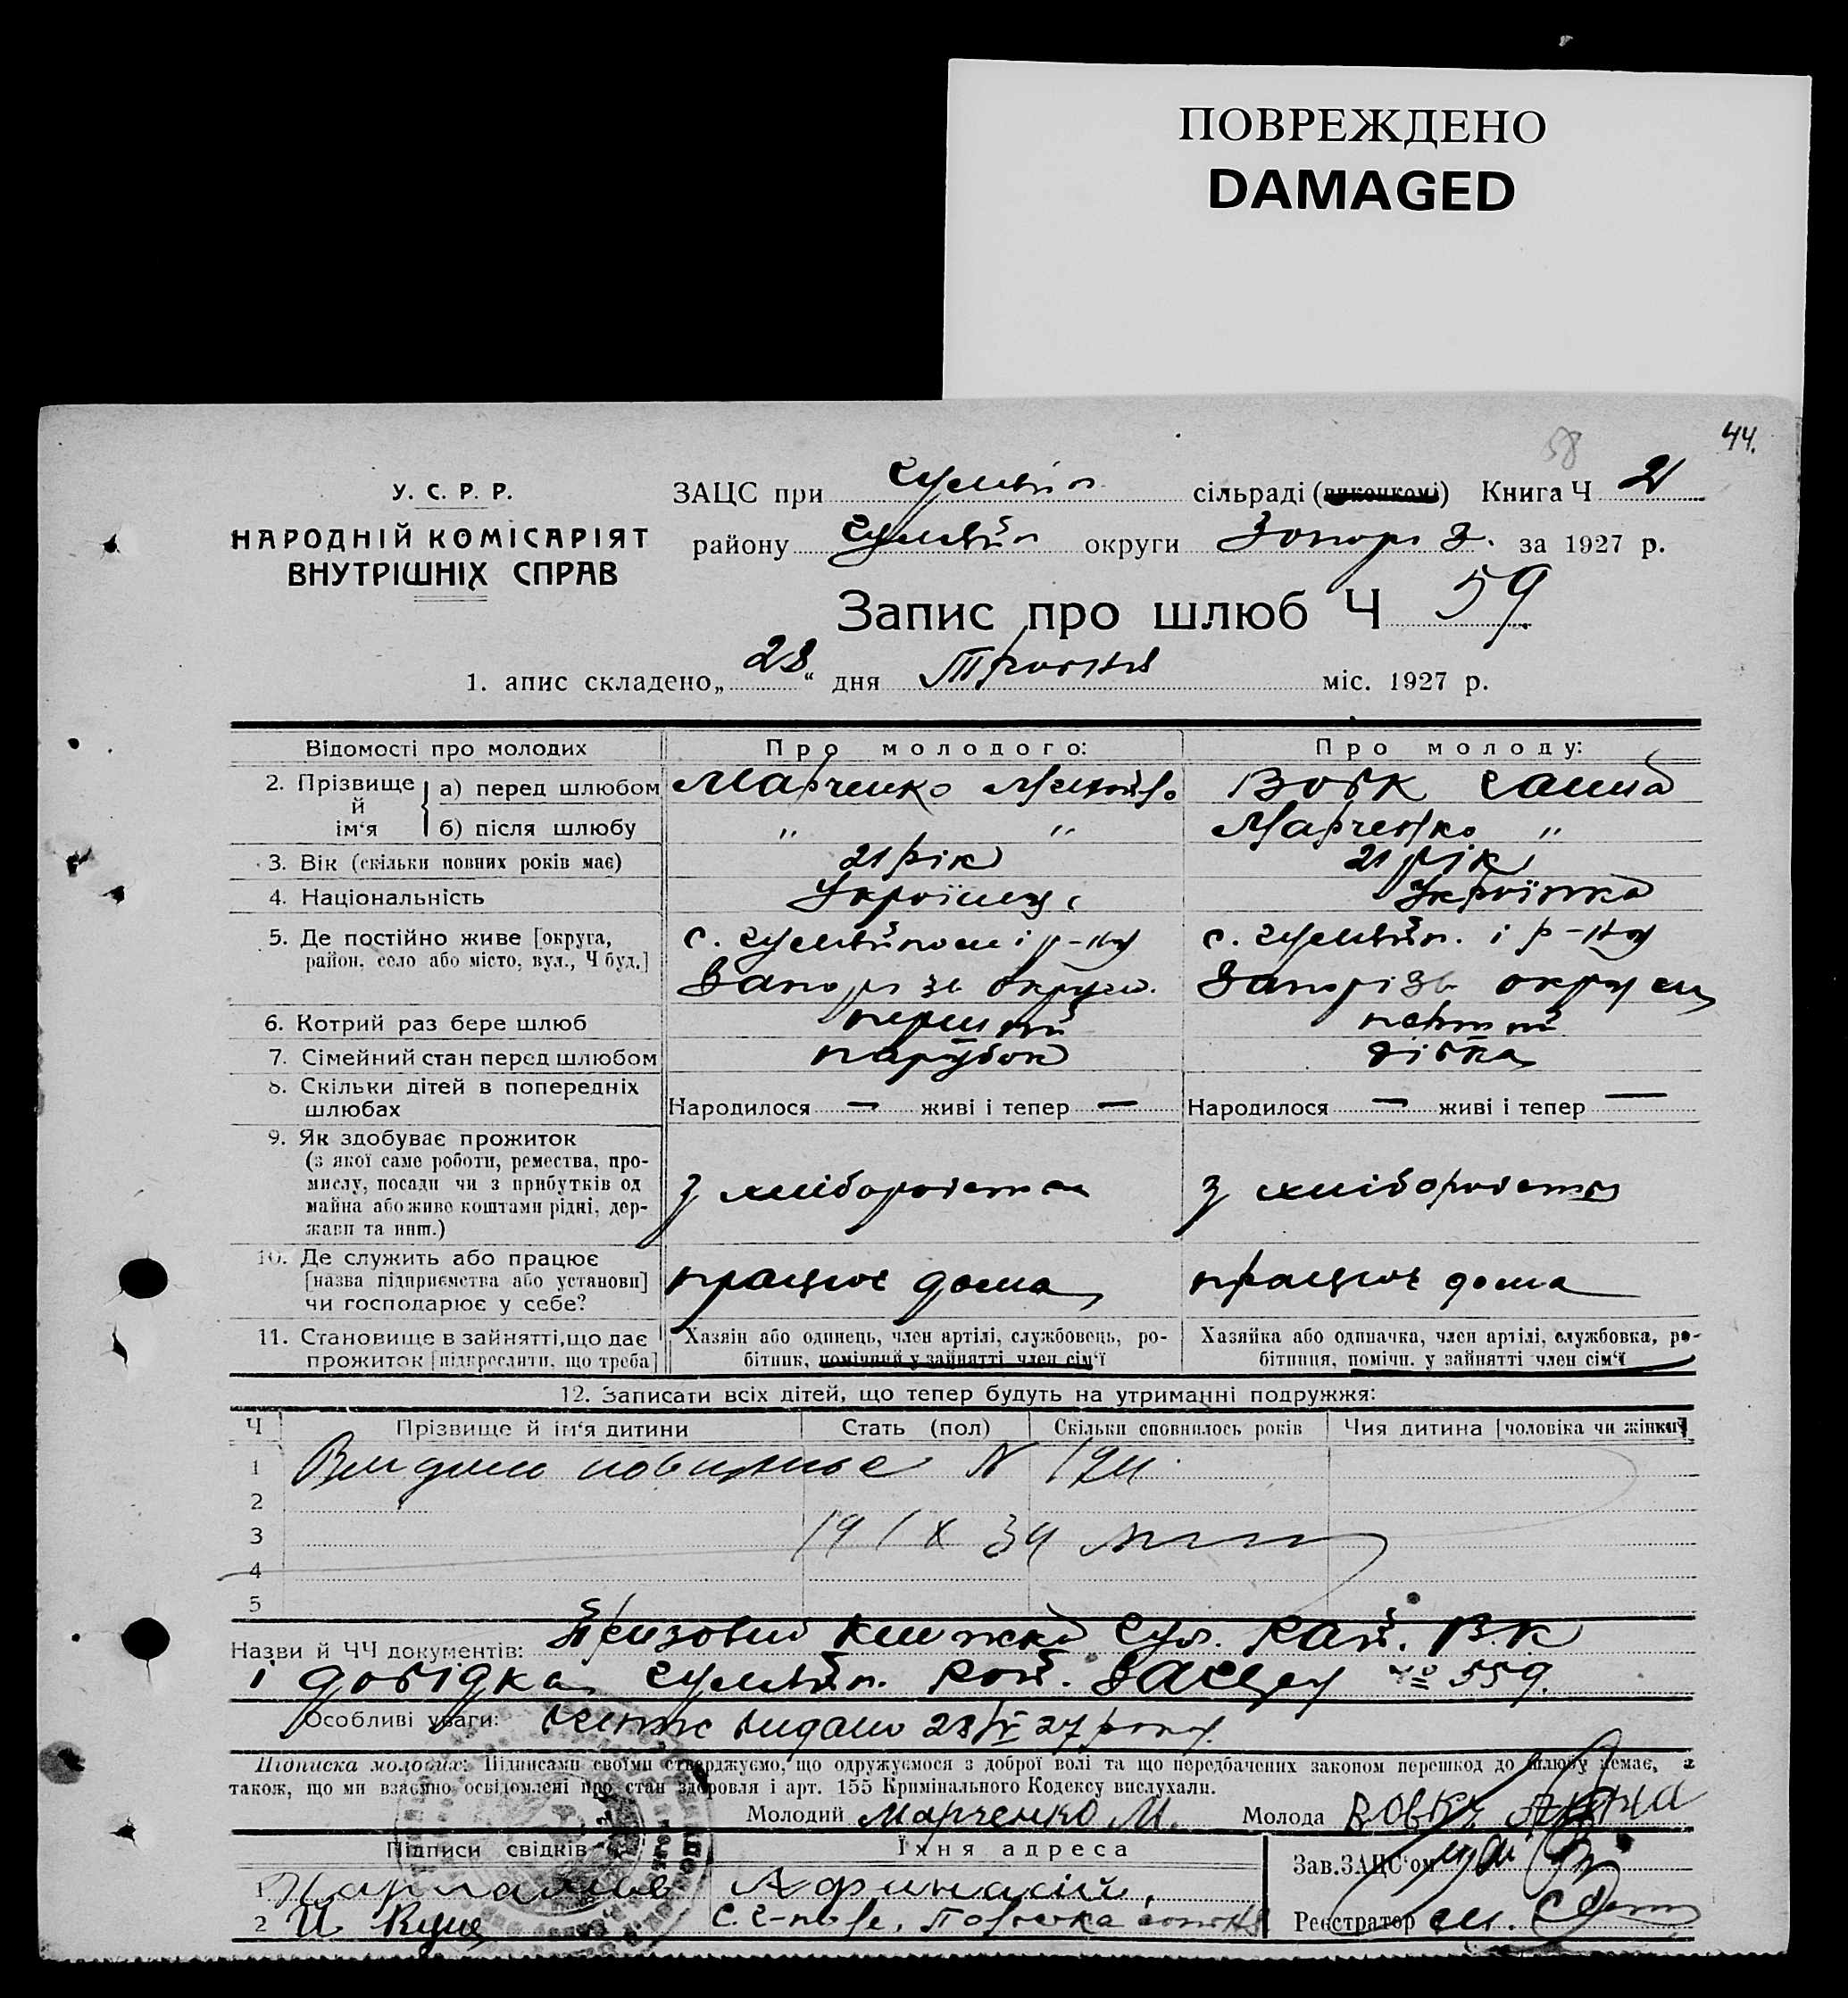 ПОВРЕЖДЕНО
DAMAGED
58
44.
У. С. Р. Р.
НАРОДНІЙ КОМІСАРІЯТ
ВНУТРІШНІХ СПРАВ
ЗАЦС при Гуляйп сільраді (виконкомі) Книга Ч 21
району Гуляйп округи Запоріз. за 1927 р.
Запис про шлюб Ч 59
1. апис складено „28“ дня Травня міс. 1927 р.
Відомості про молодих Про молодого: Про молоду:
2. Прізвище й ім‘я
а) перед шлюбом Марченко Вовк Ганна
б) після шлюбу " " Марченко "
3. Вік (скільки повних років має) 21 рік 21 рік
4. Національність Українец Українка
5. Де постійно живе [округа, с. Гуляйполе і р-ну с. Гуляйп. і р-ну
район, село або місто, вул., Ч буд.]
Запорізь округи. Запорізь округи
6. Котрий раз бере шлюб перший перший
7. Сімейний стан перед шлюбом парубок дівка
8. Скільки дітей в попередніх шлюбах
Народилося — живі і тепер — Народилося — живі і тепер —
9. Як здобуває прожиток
(з якої саме роботи, ремества, про-
мислу, посади чи з прибутків од
майна або живе коштами рідні, дер-
жави та инш.)
з хліборобства з хліборобства
10. Де служить або працює
[назва підприємства або установи]
чи господарює у себе?
працює дома працює дома
11. Становище в зайнятті, що дає
прожиток [підкреслити, що треба]
Хазяін або одинець, член артілі, службовець, ро-
бітник, помічний у зайнятті член сім‘ї
Хазяйка або одиначка, член артілі, службовка, ро-
бітниця, помічн. у зайнятті член сім‘ї
12. Записати всіх дітей, що тепер будуть на утриманні подружжя:
Ч Прізвище й ім‘я дитини Стать (пол) Скільки сповнилось років Чия дитина [чоловіка чи жінки]
1 Видано N
2
3 19/X 34
4
5
Назви й ЧЧ документів: Призовна книжка Гул. Рай. В.К
і довідка Гуляйп. Рай. Загсу № 559.
Особливі уваги: видано 28/V 27 року.
Підписка молодих: Підписами своїми стверджуємо, що одружуємося з доброї волі та що передбачених законом перешкод до шлюбу немає, а
також, що ми взаємно освідомлені про стан здоровля і арт. 155 Кримінального Кодексу вислухали.
Молодий Марченко М. Молода Вовк Ганна
Підписи свідків Їхня адреса
Зав. ЗАЦС‘ом
1
2 С. Г-поле,
Реєстратор